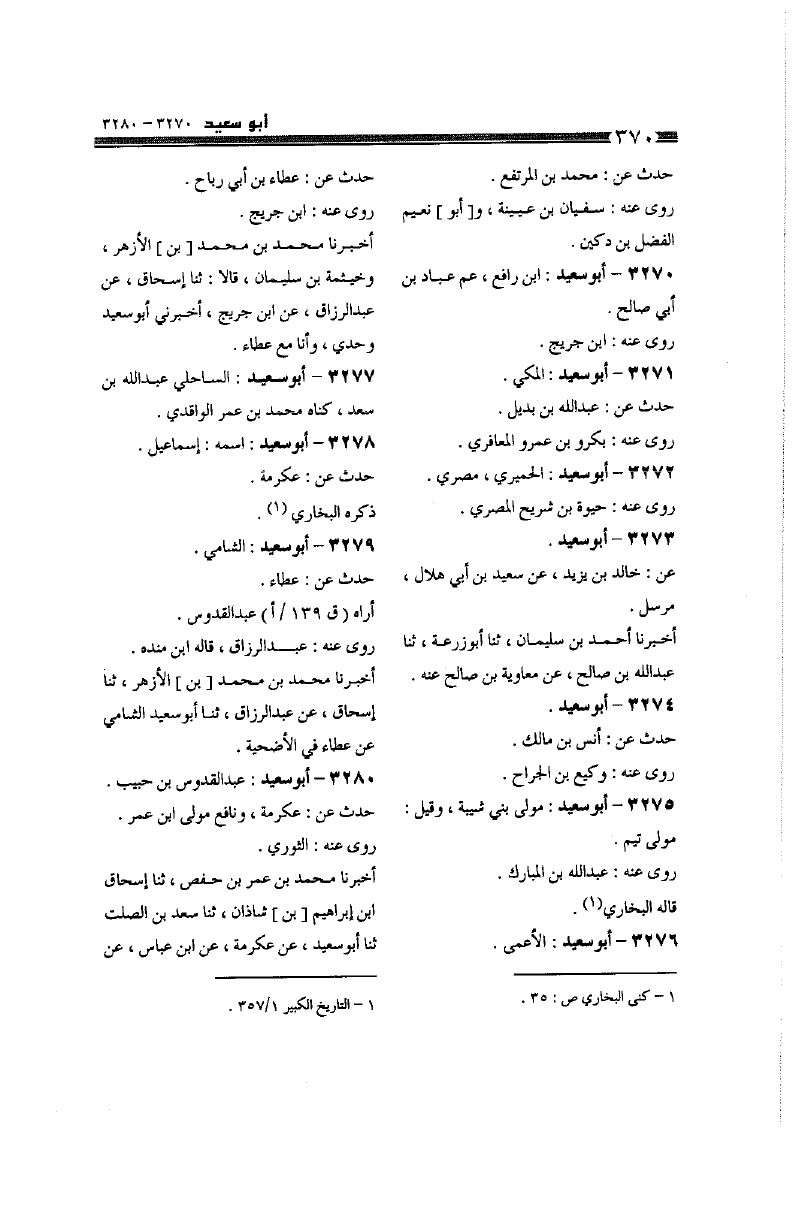 أبو سعيد ٣٢٧٠ – ٣٢٨٠
٣٧٠
حدث عن : محمد بن المرتفع .
روى عنه : سفيان بن عيينة ، و[ أبو ] نعيم
الفضل بن دكين .
٣٢٧٠ – أبوسعيد : ابن رافع ، عم عباد بن
أبي صالح .
روى عنه : ابن جريج .
٣٢٧١ – أبوسعيد : المكي .
حدث عن : عبدالله بن بديل .
روى عنه : بكرو بن عمرو المعافري .
٣٢٧٢ – أبوسعيد : الحميري ، مصري .
روى عنه : حيوة بن شريح المصري .
٣٢٧٣ – أبوسعيد .
عن : خالد بن يزيد ، عن سعيد بن أبي هلال ،
مرسل .
أخبرنا أحمد بن سليمان ، ثنا أبوزرعة ، ثنا
عبدالله بن صالح ، عن معاوية بن صالح عنه .
٣٢٧٤ – أبوسعيد .
حدث عن : أنس بن مالك .
روى عنه : وكيع بن الجراح .
٣٢٧٥ – أبوسعيد : مولى بني شيبة ، وقيل :
مولى تيم .
روى عنه : عبدالله بن المبارك .
قاله البخاري(١) .
٣٢٧٦ – أبوسعيد : الأعمى .
١ – كنى البخاري ص : ٣٥ .
حدث عن : عطاء بن أبي رباح .
روى عنه : ابن جريج .
أخبرنا محمد بن محمد [ بن ] الأزهر ،
وخيثمة بن سليمان ، قالا : ثنا إسحاق ، عن
عبدالرزاق ، عن ابن جريج ، أخبرني أبوسعيد
وحدي ، وأنا مع عطاء .
٣٢٧٧ – أبوسعيد : الساحلي عبدالله بن
سعد ، كناه محمد بن عمر الواقدي .
٣٢٧٨ – أبوسعيد : اسمه : إسماعيل .
حدث عن : عكرمة .
ذكره البخاري (١) .
٣٢٧٩ – أبوسعيد : الشامي .
حدث عن : عطاء .
أراه ( ق ١٣٩ / أ ) عبدالقدوس .
روى عنه : عبدالرزاق ، قاله ابن منده .
أخبرنا محمد بن محمد [ بن ] الأزهر ، ثنا
إسحاق ، عن عبدالرزاق ، ثنا أبوسعيد الشامي
عن عطاء في الأضحية .
٣٢٨٠ – أبوسعيد : عبدالقدوس بن حبيب .
حدث عن : عكرمة ، ونافع مولى ابن عمر .
روى عنه : الثوري .
أخبرنا محمد بن عمر بن حفص ، ثنا إسحاق
ابن إبراهيم [ بن ] شاذان ، ثنا سعد بن الصلت
ثنا أبوسعيد ، عن عكرمة ، عن ابن عباس ، عن
١ – التاريخ الكبير ٣٥٧/١ .